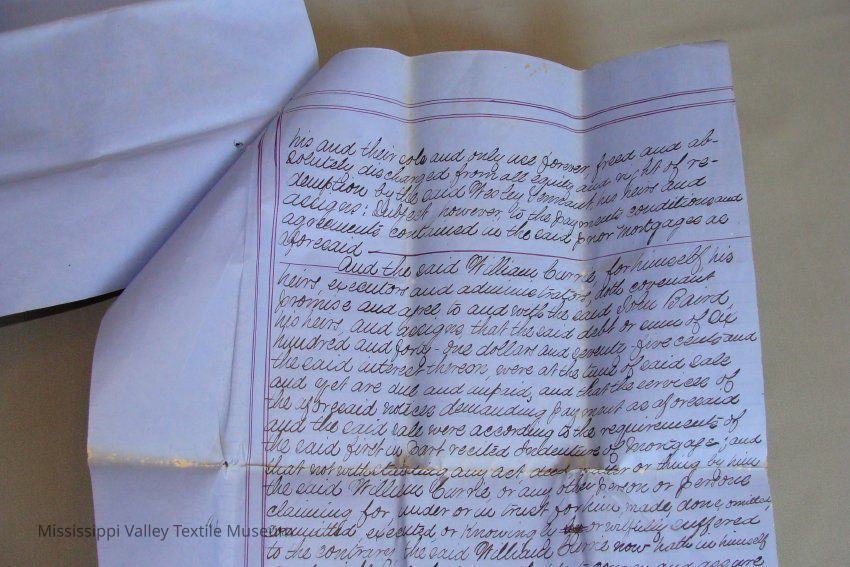 his and their sole and only use forever, freed and ab-
solutely discharged from all equity and right of re-
demption by the said Wesley his heirs and
assigns; Subject however to the payments conditions and
agreements contained in the said prior mortgages as
aforesaid —
And the said William Currie for himself his
heirs, executors and administrators, doth covenant
promise and agree to and with the said John Baird,
his heirs, and assigns that the said debt or sum of Six
hundred and forty-one dollars and seventy-five cents and
the said interest thereon, were at the time of said sale
and yet are due and unpaid, and that the services of
the aforesaid notices demanding payment as aforesaid
and the said sale were according to the requirements of
the said first in part recited Indenture of Mortgage; and
that notwithstanding any act deed matter or thing by him
the said William Currie or any other person or persons
claiming for under or in trust for him made done, omitted,
committed, executed or knowingly or wilfully suffered
to the contrary the said William Currie now hath in himself
and assure
Mississippi Valley Textile Museum